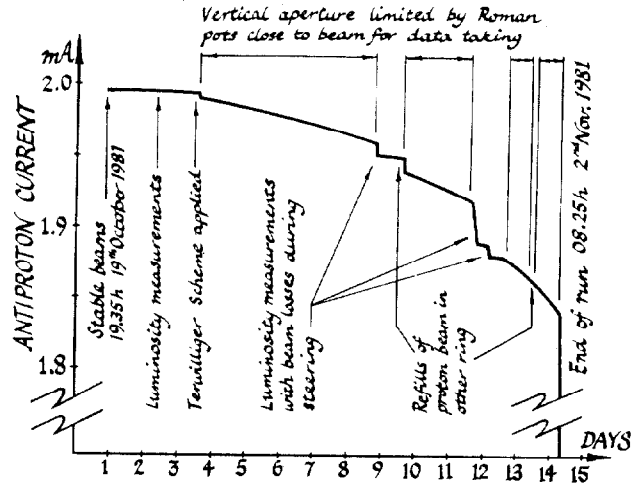 Vertical aperture limited by Roman
pots close to beam for data taking
mA
2.0
1.9
1.8
ANTIPROTON CURRENT
Stable beams
19.35h 19th October 1981
Luminosity measurements
Terwilliger Scheme applied
Luminosity measurements
with beam losses during
steering
Refills of
proton beam in
other ring
End of run 08.25h 2nd Nov. 1981
1 2 3 4 5 6 7 8 9 10 11 12 13 14 15
DAYS